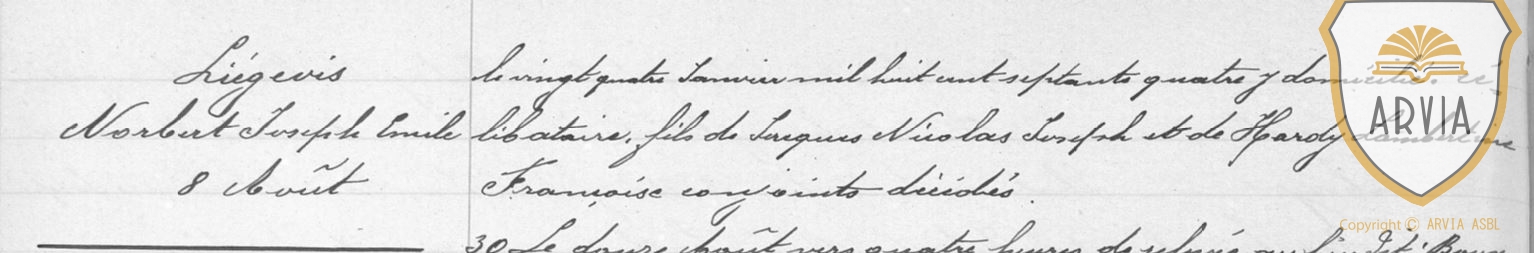 Liégeois
Norbert Joseph Emile
8 Août
le vingt quatre Janvier mil huit cent septante quatre y domicilié. cé-
libataire, fils de Jacques Nicolas Joseph et de Hardy
Françoise conjoints décédés.
30 Le douze Août vers quatre heures de relevée au lieudit
ARVIA
Copyright © ARVIA ASBL